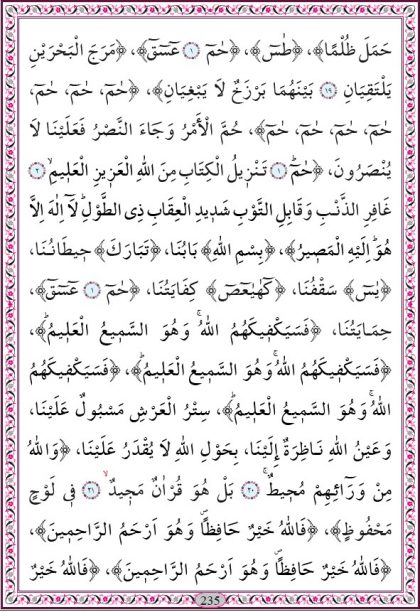 حَمَلَ ظُلْمًا﴾، ﴿طٰسٓ﴾، ﴿حٰمٓ ﴿١﴾ عٓسٓقٓ﴾، ﴿مَرَجَ الْبَحْرَيْنِ
يَلْتَقِيَانِ ﴿١٩﴾ بَيْنَهُمَا بَرْزَخٌ لَا يَبْغِيَانِ﴾، ﴿حٰمٓ، حٰمٓ، حٰمٓ،
حٰمٓ، حٰمٓ، حٰمٓ، حٰمٓ﴾، حُمَّ الْأَمْرُ وَجَاءَ النَّصْرُ فَعَلَيْنَا لَا
يُنْصَرُونَ، ﴿حٰمٓ ﴿١﴾ تَنْزِيلُ الْكِتَابِ مِنَ اللهِ الْعَزِيزِ الْعَلِيمِۙ ﴿٢﴾
غَافِرِ الذَّنْبِ وَقَابِلِ التَّوْبِ شَدِيدِ الْعِقَابِ ذِى الطَّوْلِۜ لَٓا اِلٰهَ اِلَّا
هُوَۜ اِلَيْهِ الْمَصِيرُ﴾، ﴿بِسْمِ اللهِ﴾ بَابُنَا، ﴿تَبَارَكَ﴾ حِيطَانُنَا،
﴿يٰسٓ﴾ سَقْفُنَا، ﴿كٓهٰيٰعٓصٓ﴾ كِفَايَتُنَا، ﴿حٰمٓ ﴿١﴾ عٓسٓقٓ﴾،
حِمَايَتُنَا، ﴿فَسَيَكْفِيكَهُمُ اللهُۚ وَهُوَ السَّمِيعُ الْعَلِيمُۜ﴾،
﴿فَسَيَكْفِيكَهُمُ اللهُۚ وَهُوَ السَّمِيعُ الْعَلِيمُۜ﴾، ﴿فَسَيَكْفِيكَهُمُ
اللهُۚ وَهُوَ السَّمِيعُ الْعَلِيمُۜ﴾، سِتْرُ الْعَرْشِ مَسْبُولٌ عَلَيْنَا،
وَعَيْنُ اللهِ نَاظِرَةٌ إِلَيْنَا، بِحَوْلِ اللهِ لَا يُقْدَرُ عَلَيْنَا، ﴿وَاللهُ
مِنْ وَرَٓائِهِمْ مُحِيطٌۚ ﴿٢٠﴾ بَلْ هُوَ قُرْاٰنٌ مَجِيدٌۙ ﴿٢١﴾ فِى لَوْحٍ
مَحْفُوظٍ﴾، ﴿فَاللهُ خَيْرٌ حَافِظًاۖ وَهُوَ اَرْحَمُ الرَّاحِمِينَ﴾،
﴿فَاللهُ خَيْرٌ حَافِظًاۖ وَهُوَ اَرْحَمُ الرَّاحِمِينَ﴾، ﴿فَاللهُ خَيْرٌ
235